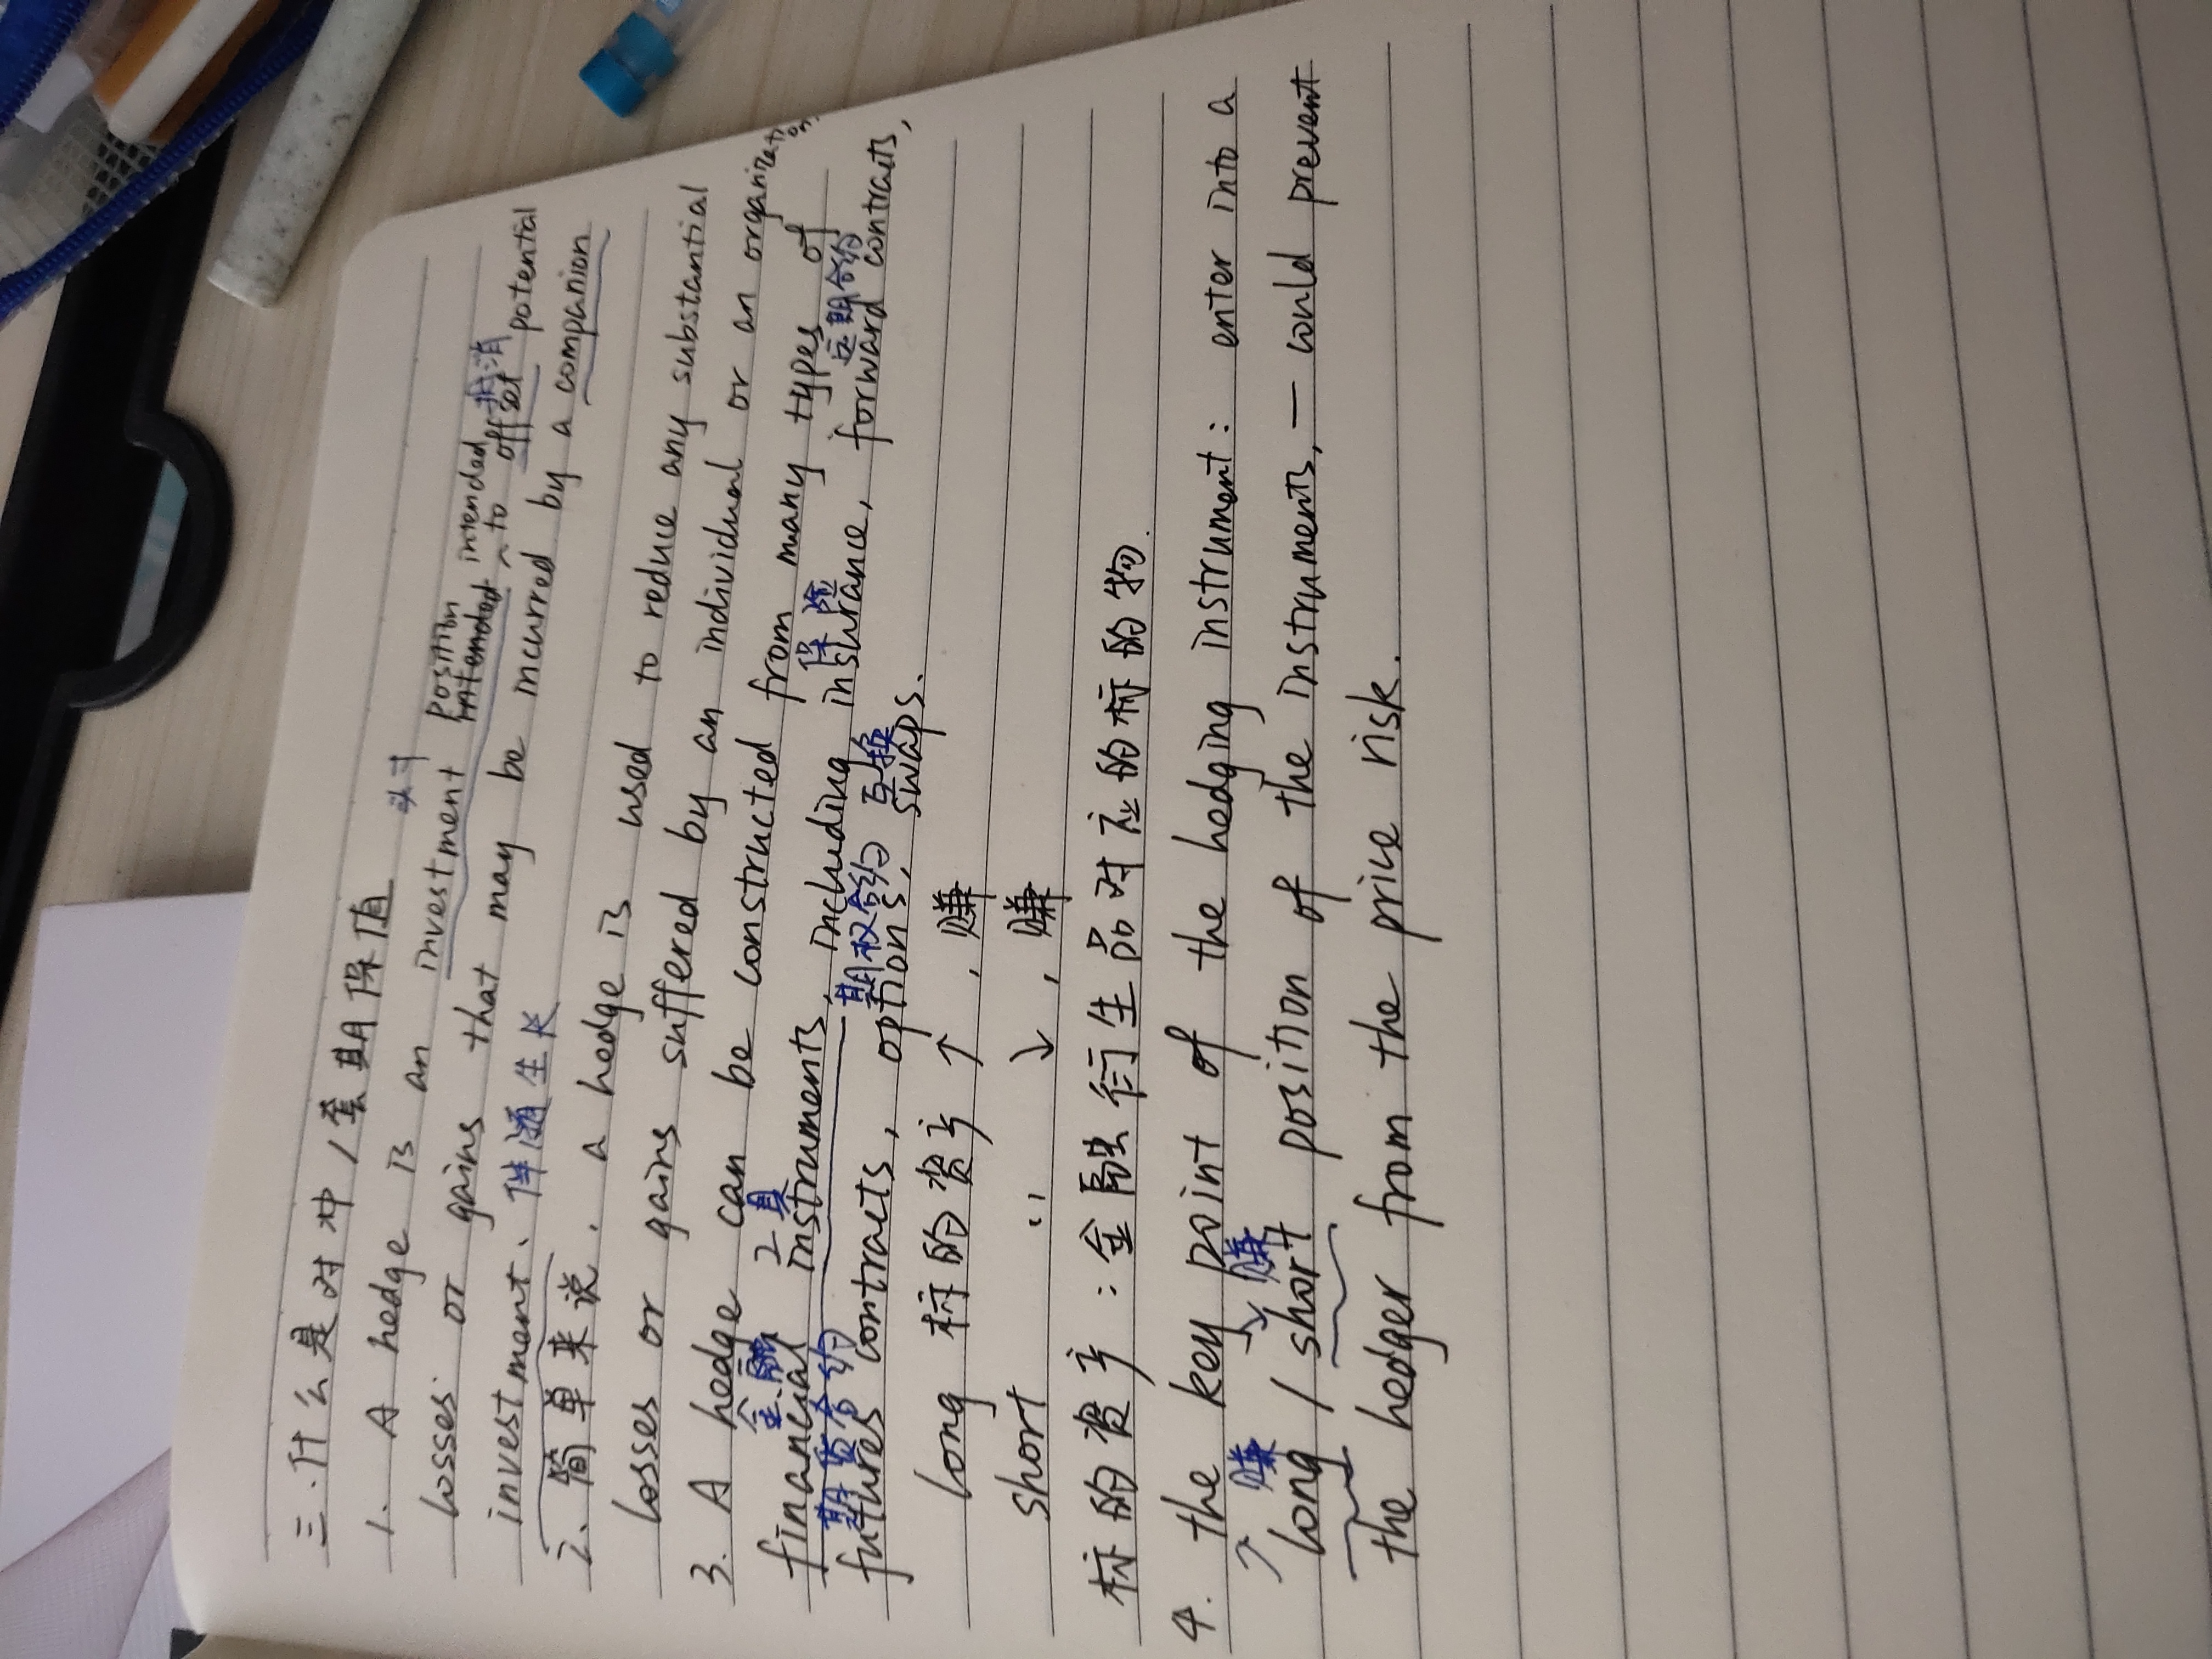 三.什么是对冲/套期保值
头寸
1. A hedge is an investment position intended 抵消
losses or gains that may be incurred by a companion
to offset potential
investment. 伴随生长
2. 简单来说, a hedge is used to reduce any substantial
losses or gains suffered by an individual or an organization.
3. A hedge can be constructed from many types of
金融 工具 保险 远期合约
financial instruments, including insurance, forward contracts,
期货合约 期权合约 互换
futures contracts, options, swaps.
long 标的资产 ↑, 赚
short 〃 ↓, 赚
标的资产:金融衍生品对应的标的物.
4. the key point of the hedging instrument: enter into a
↑ 赚 ↓ 赚
long / short position of the instruments, — could prevent
the hedger from the price risk.